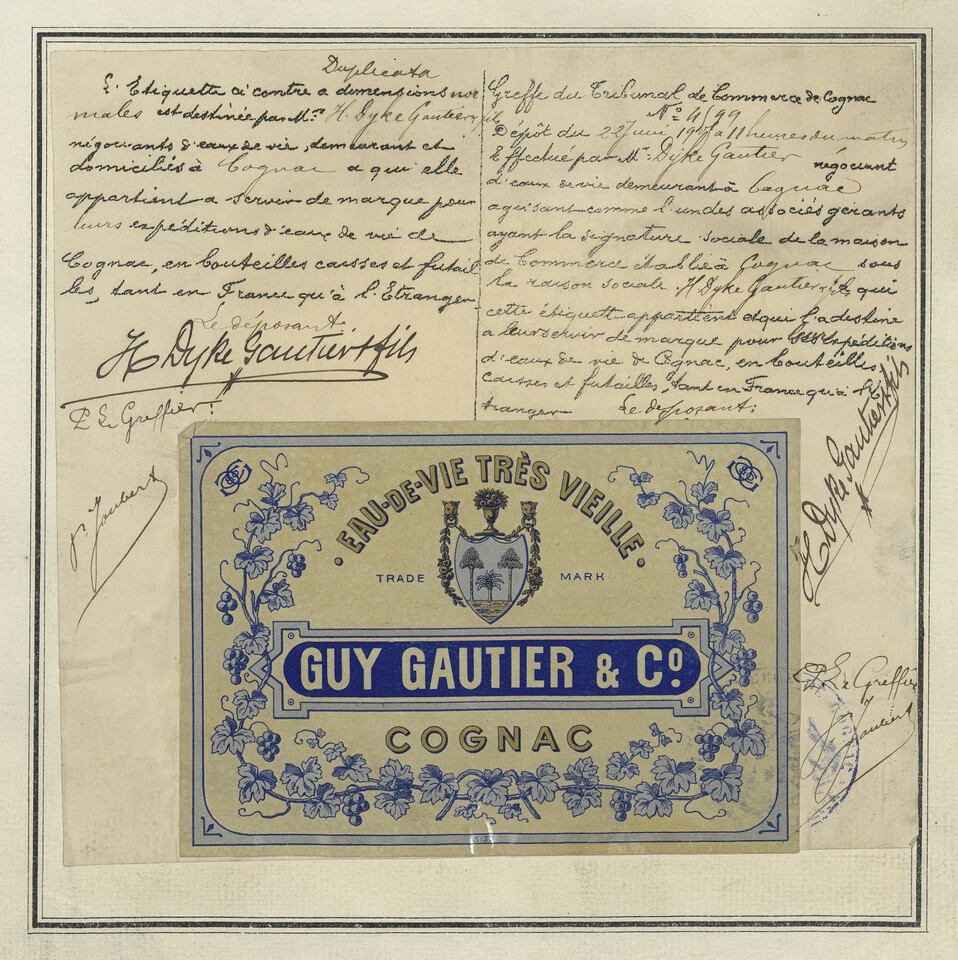 Duplicata
L'Etiquette ci contre a dimensions nor
males est destinée par Mrs H. Dyke Gautier & fils
négociants d'eaux de vie, demeurant et
domiciliés à Cognac a qui elle
appartient a servir de marque pour
leurs expéditions d'eaux de vie de
Cognac, en bouteilles caisses et futail
les, tant en France qu'à l'Etranger
Le déposant
H Dyke Gautier & fils
P. Le Greffier:
Greffe du Tribunal de Commerce de Cognac
No 4599
Dépôt du 22 Juin à 11 heures du matin
Effectué par Mr Dyke Gautier négociant
d'eaux de vie demeurant à Cognac
agissant comme l'un des associés gérants
ayant la signature sociale de la maison
de Commerce établie à Cognac sous
la raison sociale H Dyke Gautier & fils à qui
cette étiquette appartient et qui l'a destine
a leur servir de marque pour ses expéditions
d'eaux de vie de Cognac, en bouteilles,
caisses et futailles, tant en France qu'à l'E
tranger Le déposant:
H Dyke Gautier & fils
P. Le Greffier
EAU-DE-VIE TRÈS VIEILLE
TRADE MARK
GUY GAUTIER & Co
COGNAC